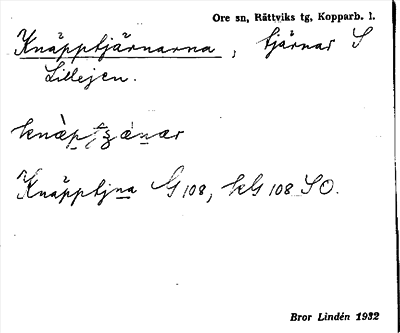 Ore sn, Rättviks tg, Kopparb. l.
Knäpptjärnarna, tjärnar S
Lillejen.
knàp
Knäpptjna G 108, kG 108 SO.
Bror Lindén 1932